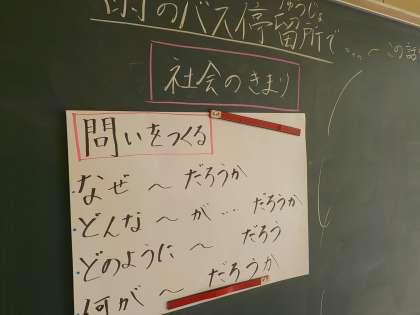 雨のバス停留所で…～この話
りゅうじょ
社会のきまり
問いをつくる
・なぜ～だろうか
・どんな～が…だろうか
・どのように～だろう
・何が～だろうか